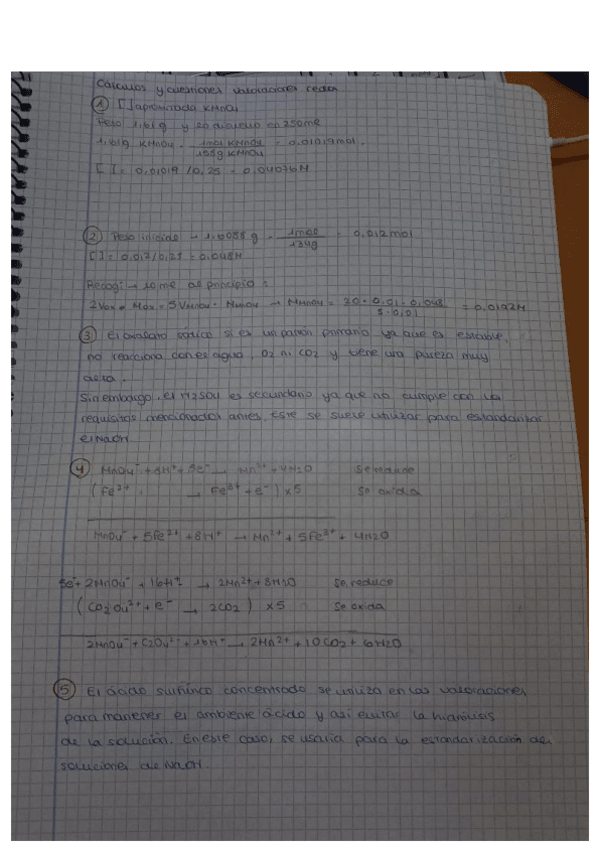 Cálculos y cuestiones valoraciones redox
① [ ]aproximada KMnO4
Peso 1.61g y se disuelve en 250mL
1.61g KMnO4 · 1mol KMnO4 / 158g KMnO4 = 0.01019mol.
[ ] = 0.01019 / 0.25 = 0.04076M
② Peso inicial → 1.6058 g · 1mol / 134g = 0.012mol
[ ] = 0.012/0.25 = 0.048M
Recogí → 10 mL al principio :
2Vox · Mox = 5VMnO4 · MMnO4 → MMnO4 = 20 · 0.01 · 0.048 / 5 · 0.01 = 0.0192M
③ El oxalato sódico si es un patrón primario ya que es estable,
no reacciona con el agua, O2 ni CO2 y tiene una pureza muy
alta.
Sin embargo, el H2SO4 es secundario ya que no cumple con los
requisitos mencionados antes. Este se suele utilizar para estandarizar
el NaOH.
④ MnO4⁻ + 8H⁺ + 5e⁻ → Mn²⁺ + 4H2O Se reduce
(Fe²⁺ → Fe³⁺ + e⁻) x5 Se oxida
MnO4⁻ + 5Fe²⁺ + 8H⁺ → Mn²⁺ + 5Fe³⁺ + 4H2O
5e⁻ + 2MnO4⁻ + 16H⁺ → 2Mn²⁺ + 8H2O Se reduce
(CO2O4²⁺ + e⁻ → 2CO2) x5 Se oxida
2MnO4⁻ + C2O4²⁻ + 16H⁺ → 2Mn²⁺ + 10CO2 + 6H2O
⑤ El ácido sulfúrico concentrado se utiliza en las valoraciones
para mantener el ambiente ácido y así evitar la hidrólisis
de la solución. En este caso, se usaría para la estandarización de
soluciones de NaOH.